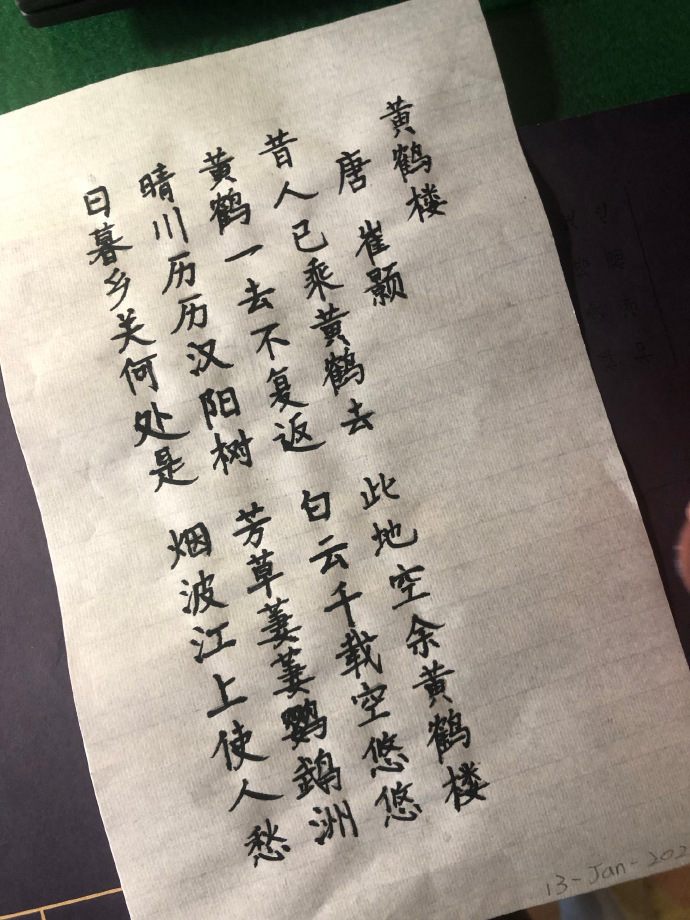 黄鹤楼
唐 崔颢
昔人已乘黄鹤去 此地空余黄鹤楼
黄鹤一去不复返 白云千载空悠悠
晴川历历汉阳树 芳草萋萋鹦鹉洲
日暮乡关何处是 烟波江上使人愁
13-Jan-202